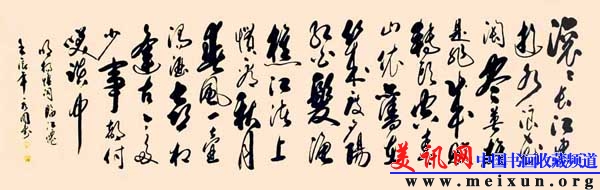 滚滚长江东
逝水浪花
淘尽英雄
是非成败
转头空青
山依旧在
几度夕阳
红白髮渔
樵江渚上
惯看秋月
春风一壶
浊酒喜相
逢古今多
少事都付
笑谈中
明杨慎词临江仙
壬辰年 书
美讯网 中国书画收藏频道
www.meixun.org